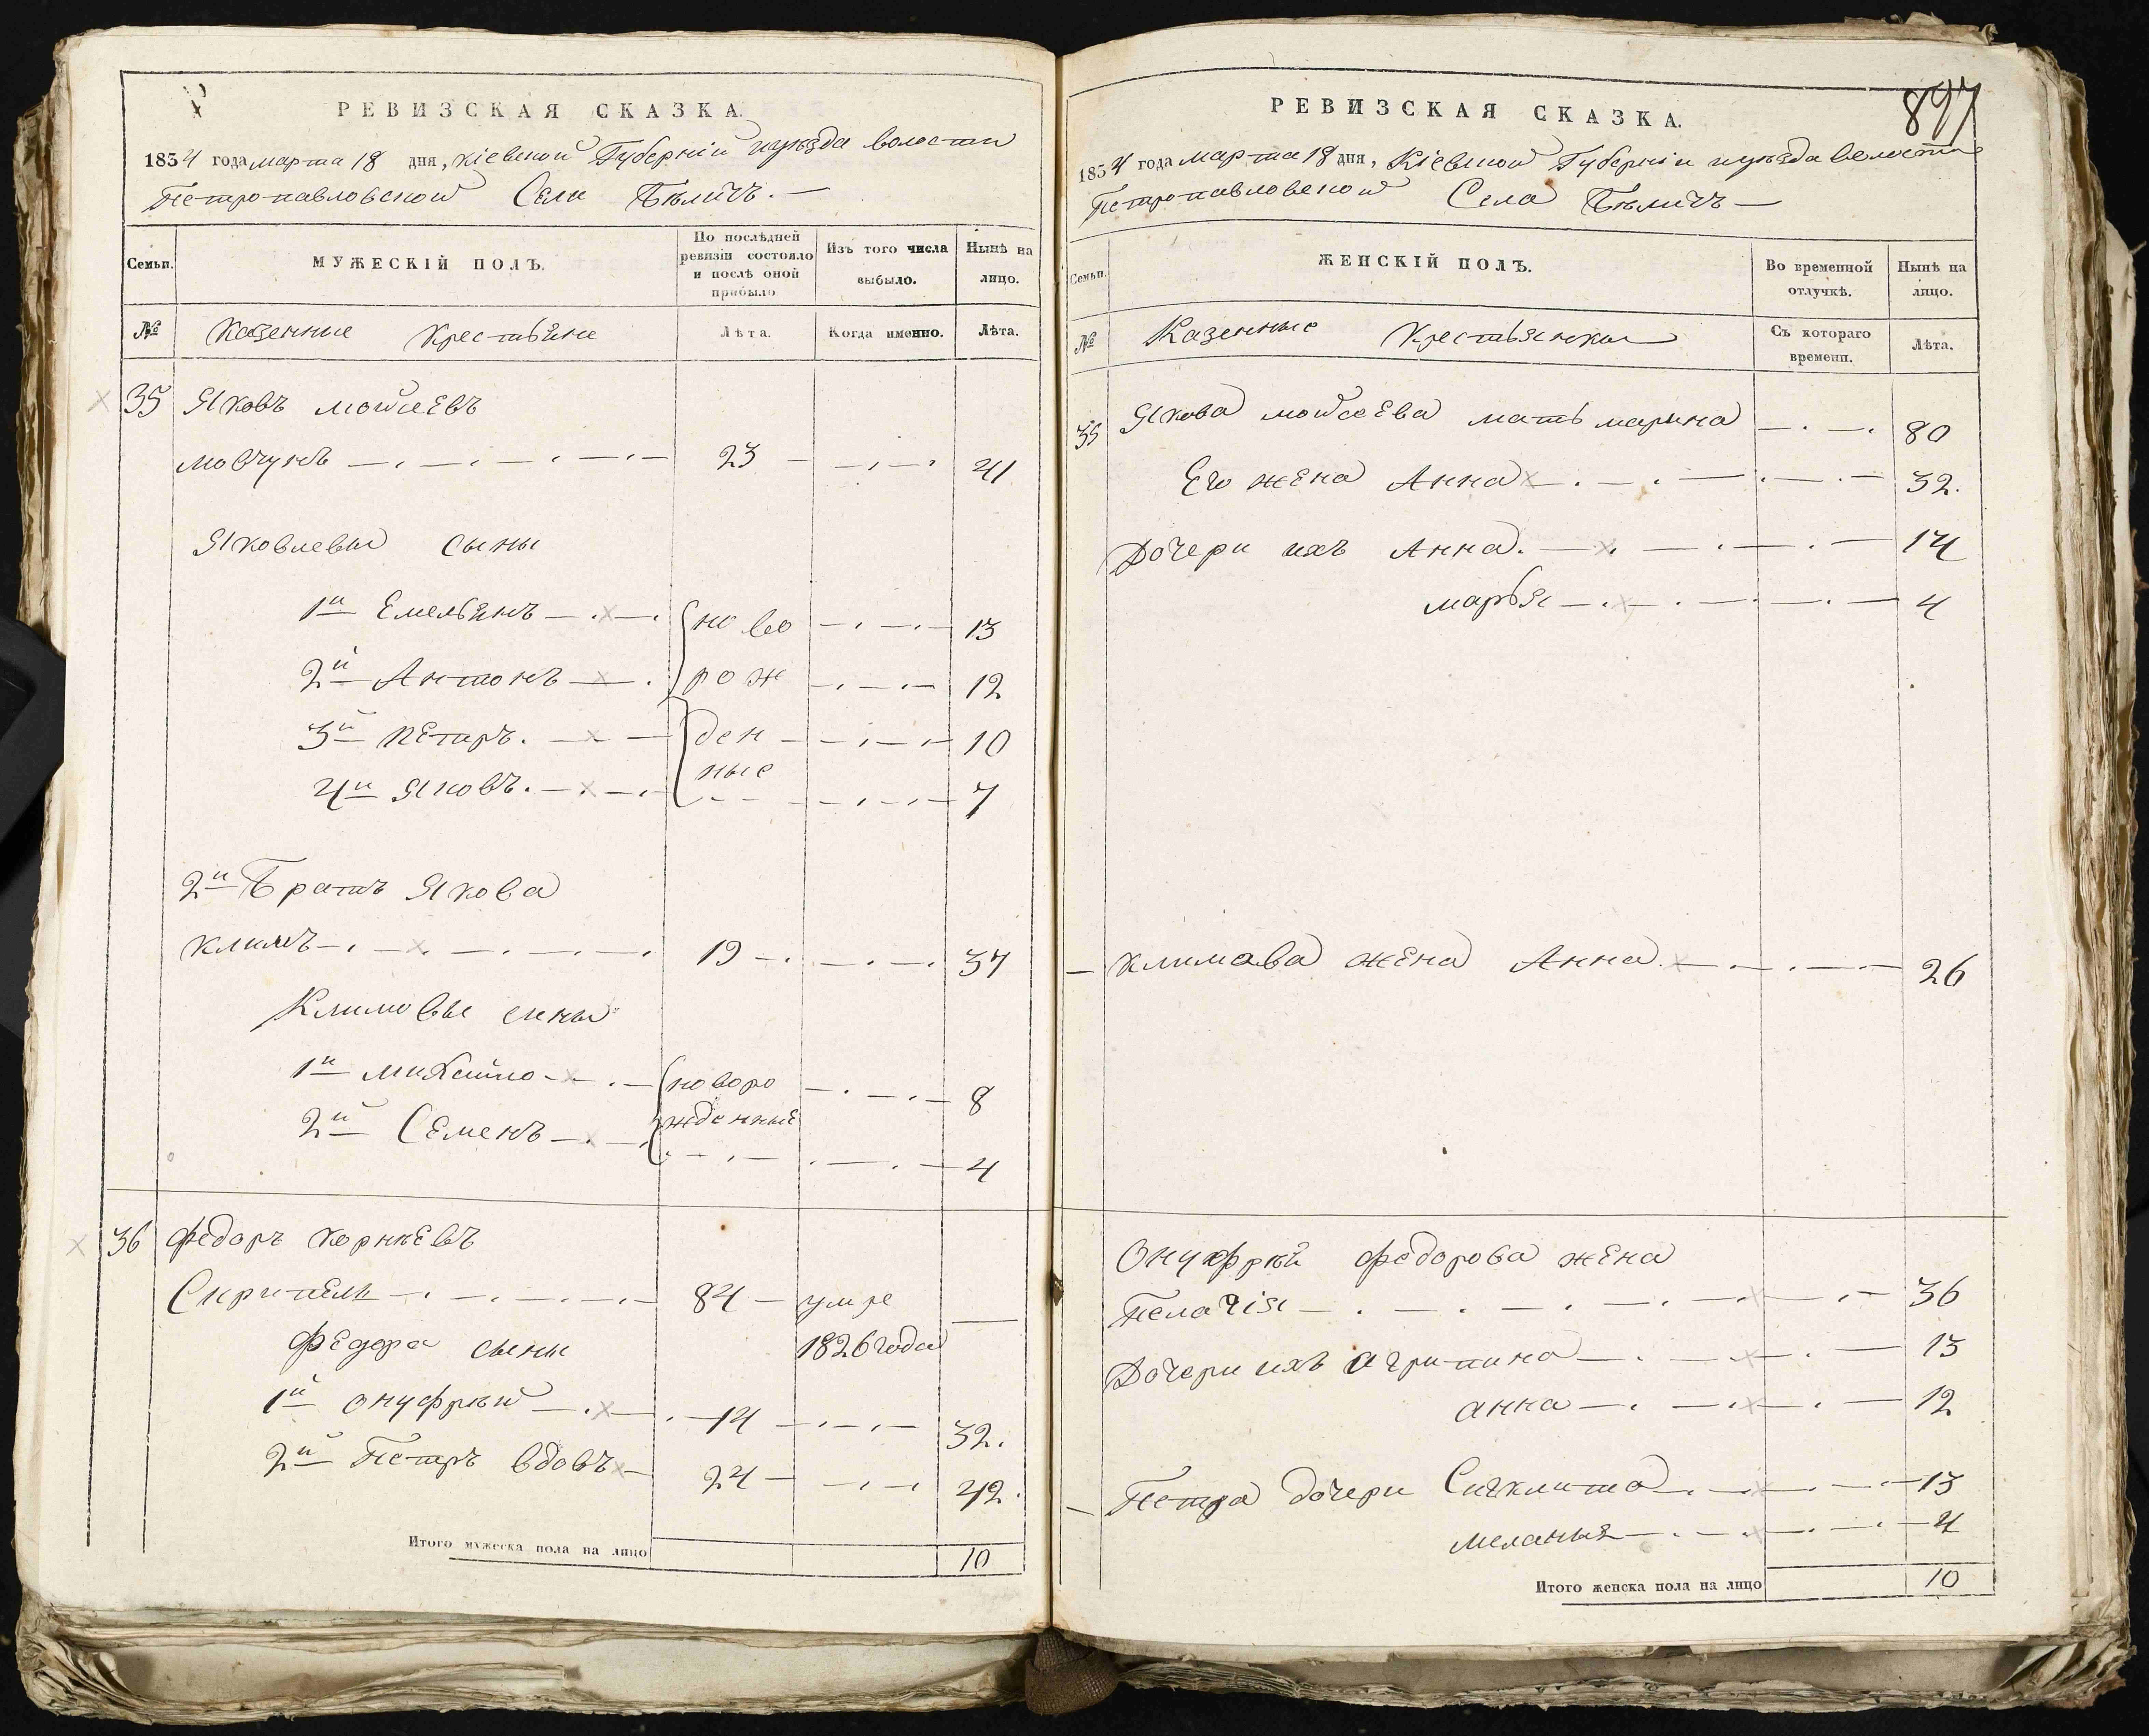 РЕВИЗСКАЯ СКАЗКА.
1834 года марта 18 дня, Кіевской Губерніи и уѣзда волости
Петропавловской Села Бѣличъ. —
Семьи.
МУЖЕСКІЙ ПОЛЪ.
По послѣдней ревизіи состояло и послѣ оной прибыло
Изъ того числа выбыло.
Нынѣ на лицо.
№ Казенные Крестьяне Лѣта. Когда именно. Лѣта.
35 Яковъ Мойсеевъ
Мовчунъ 23 41
Яковлевы сыны
1й Емельянъ ново 13
2й Антонъ рож 12
3й Петръ. ден 10
4й Яковъ. ные 7
2й Братъ Якова
Климъ 19 37
Климовы сыны
1й Михайло новоро 8
2й Семенъ жденные
4
36 Федоръ Корнѣевъ
84 умре
Федора сыны 1826 года
1й Онуфрій 14 32.
2й Петръ вдовъ 24 42.
Итого мужеска пола на лицо 10
897
РЕВИЗСКАЯ СКАЗКА.
1834 года марта 18 дня, Кіевской Губерніи и уѣзда волости
Петропавловской Села Бѣличъ —
Семьи.
ЖЕНСКІЙ ПОЛЪ.
Во временной отлучкѣ.
Нынѣ на лицо.
№ Казенные Крестьянки Съ котораго времени. Лѣта.
35 Якова Мойсеева мать Марина 80
Его жена Анна 32.
Дочери ихъ Анна. 14
Марья 4
Климова жена Анна 26
Онуфрій Федорова жена
Пелагія 36
Дочери ихъ Агрипина 13
Анна 12
Петра дочери Сигклита 13
Меланья 4
Итого женска пола на лицо 10